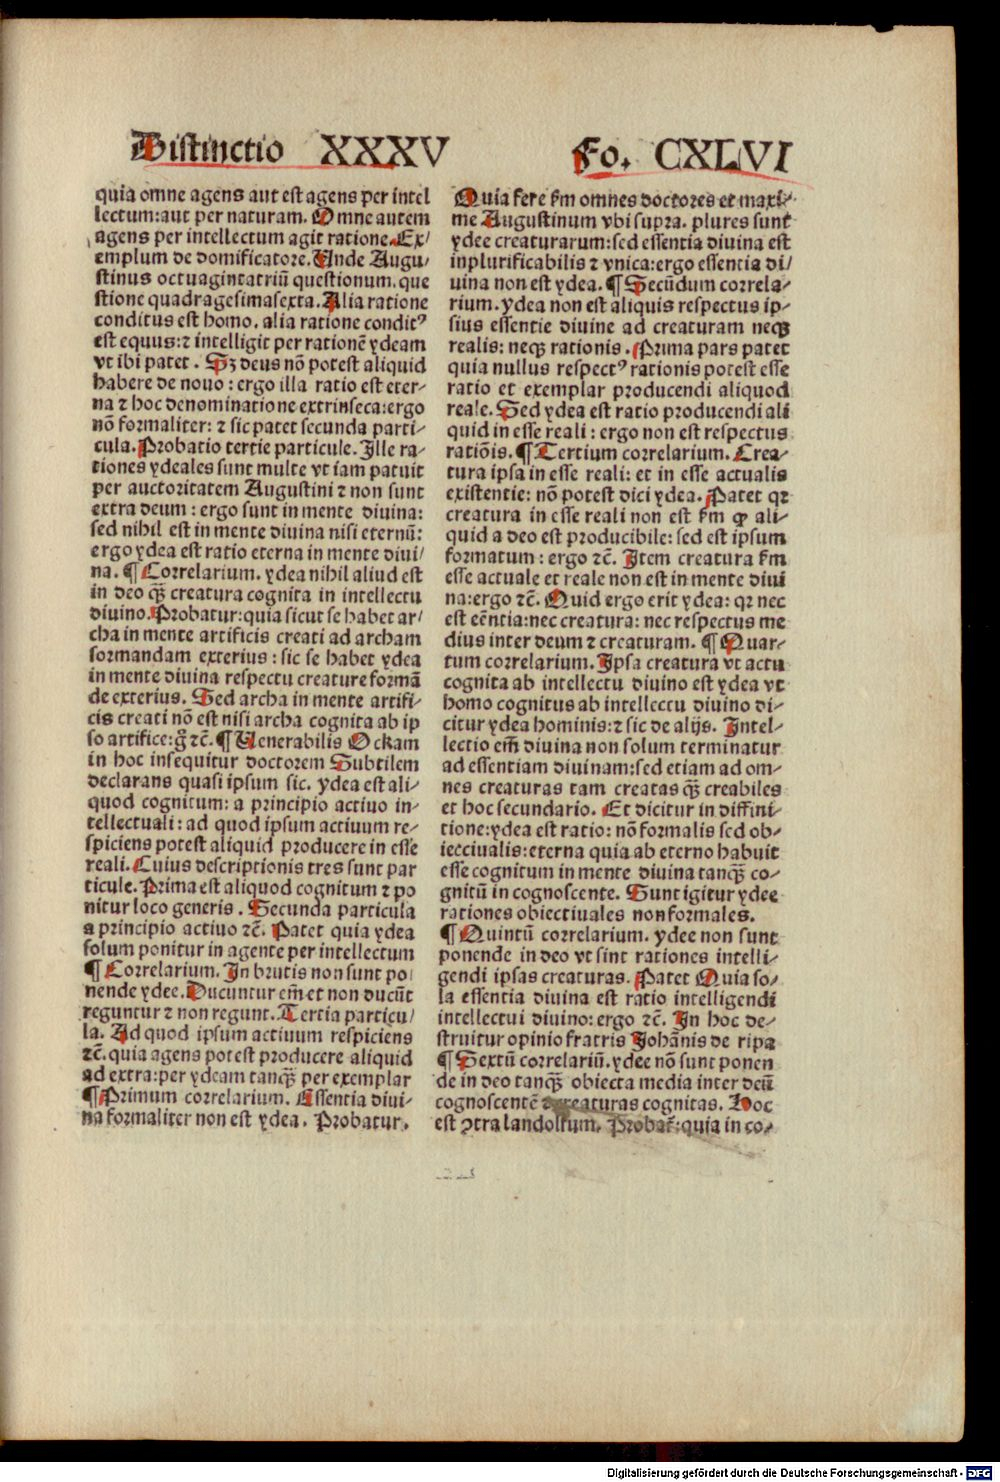 Distinctio XXXV
Fo. CXLVI
quia omne agens aut est agens per intel
lectum:aut per naturam. Omne autem
agens per intellectum agit ratione. Ex/
emplum de domificatore. Unde Augu/
stinus octuagintatriū questionum. que
stione quadragesimasexta. Alia ratione
conditus est homo. alia ratione conditꝰ
est equus: ⁊ intelligit per rationē ydeam
vt ibi patet . Sꝫ deus nō potest aliquid
habere de nouo : ergo illa ratio est eter-
na ⁊ hoc denominatione extrinseca:ergo
nō formaliter: ⁊ sic patet secunda parti-
cula. Probatio tertie particule. Ille ra-
tiones ydeales sunt multe vt iam patuit
per auctoritatem Augustini ⁊ non sunt
extra deum : ergo sunt in mente diuina:
sed nihil est in mente diuina nisi eternū:
ergo ydea est ratio eterna in mente diui/
na. ¶ Correlarium. ydea nihil aliud est
in deo qꝫ̄ creatura cognita in intellectu
diuino. Probatur: quia sicut se habet ar/
cha in mente artificis creati ad archam
formandam exterius : sic se habet ydea
in mente diuina respectu creature formā
de exterius. Sed archa in mente artifi-
cis creati nō est nisi archa cognita ab ip
so artifice:g̊ ⁊c̄. ¶ Venerabilis Ockam
in hoc insequitur doctorem Subtilem
declarans quasi ipsum sic. ydea est ali-
quod cognitum: a principio actiuo in-
tellectuali : ad quod ipsum actiuum re-
spiciens potest aliquid producere in esse
reali. Cuius descriptionis tres sunt par
ticule. Prima est aliquod cognitum ⁊ po
nitur loco generis . Secunda particula
a principio actiuo ⁊c̄. Patet quia ydea
solum ponitur in agente per intellectum
¶ Correlarium. In brutis non sunt po
nende ydee. Ducuntur em̄ et non ducūt
reguntur ⁊ non regunt. Tertia particu/
la. Ad quod ipsum actiuum respiciens
⁊c̄. quia agens potest producere aliquid
ad extra:per ydeam tanqꝫ̄ per exemplar
¶ Primum correlarium. Essentia diui-
na formaliter non est ydea. Probatur.
Quia fere ẜm omnes doctores et maxi-
me Augustinum vbi supra. plures sunt
ydee creaturarum:sed essentia diuina est
inplurificabilis ⁊ vnica:ergo essentia di/
uina non est ydea. ¶ Secūdum correla-
rium. ydea non est aliquis respectus ip-
sius essentie diuine ad creaturam neqꝫ
realis: neqꝫ rationis . Prima pars patet
quia nullus respectꝰ rationis potest esse
ratio et exemplar producendi aliquod
reale. Sed ydea est ratio producendi ali
quid in esse reali : ergo non est respectus
ratiōis. ¶ Tertium correlarium. Crea-
tura ipsa in esse reali: et in esse actualis
existentie: nō potest dici ydea. Patet qꝛ
creatura in esse reali non est ẜm ꝙ ali-
quid a deo est producibile: sed est ipsum
formatum : ergo ⁊c̄. Item creatura ẜm
esse actuale et reale non est in mente diui
na:ergo ⁊c̄. Quid ergo erit ydea: qꝛ nec
est eēntia:nec creatura: nec respectus me
dius inter deum ⁊ creaturam. ¶ Quar-
tum correlarium. Ipsa creatura vt actu
cognita ab intellectu diuino est ydea vt
homo cognitus ab intellectu diuino di-
citur ydea hominis: ⁊ sic de alijs. Intel-
lectio em̄ diuina non solum terminatur
ad essentiam diuinam:sed etiam ad om-
nes creaturas tam creatas qꝫ̄ creabiles
et hoc secundario. Et dicitur in diffini-
tione:ydea est ratio: nō formalis sed ob-
iecciualis:eterna quia ab eterno habuit
esse cognitum in mente diuina tanqꝫ̄ co-
gnitū in cognoscente. Sunt igitur ydee
rationes obiectiuales non formales.
¶ Quintū correlarium. ydee non sunt
ponende in deo vt sint rationes intelli-
gendi ipsas creaturas. Patet Quia so-
la essentia diuina est ratio intelligendi
intellectui diuino: ergo ⁊c̄. In hoc de-
struitur opinio fratris Johānis de ripa
¶ Sextū correlariū. ydee nō sunt ponen
de in deo tanqꝫ̄ obiecta media inter deū
cognoscentē ⁊ creaturas cognitas. Hoc
est ꝯtra landolfum. Probat̄: quia in co-
Digitalisierung gefördert durch die Deutsche Forschungsgemeinschaft - DFG